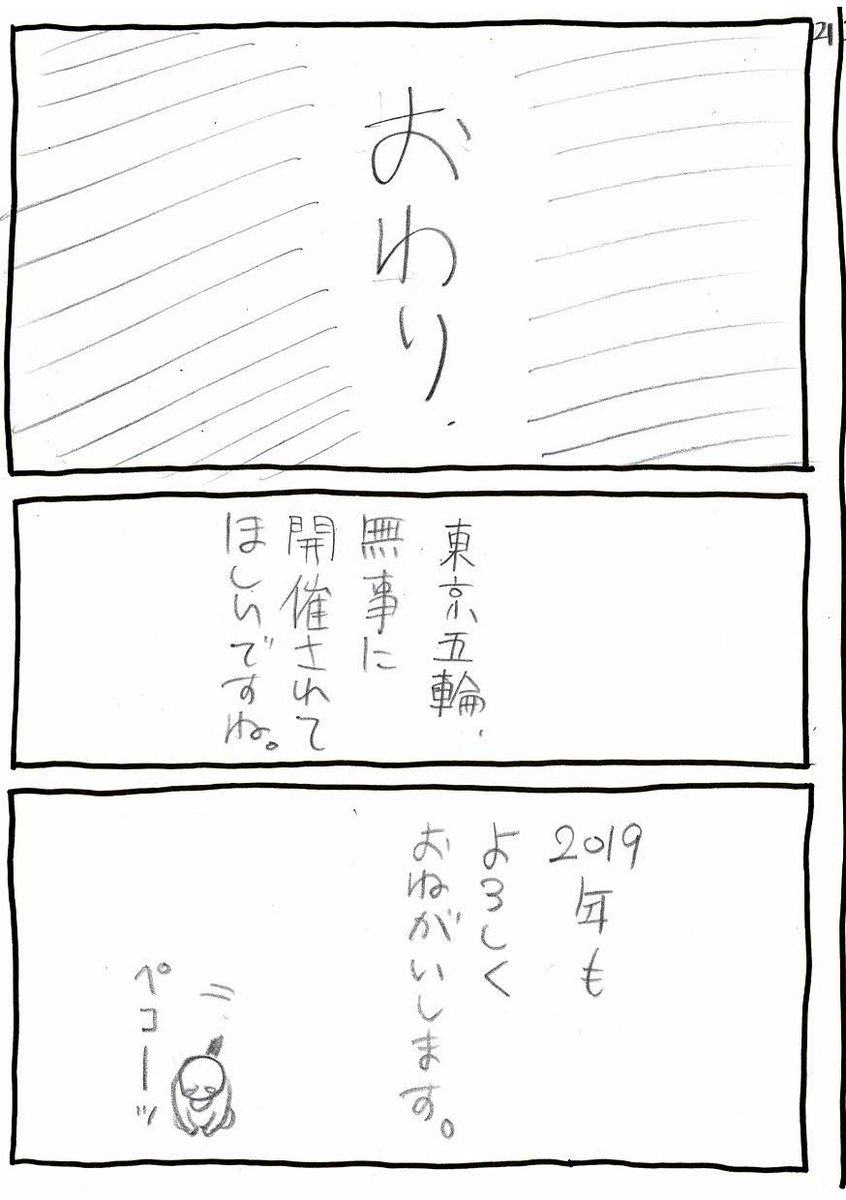 21
おわり.
東京五輪.
無事に
開催されて
ほしいですね。
2019
年も
よろしく
おねがいします。
ペコーッ